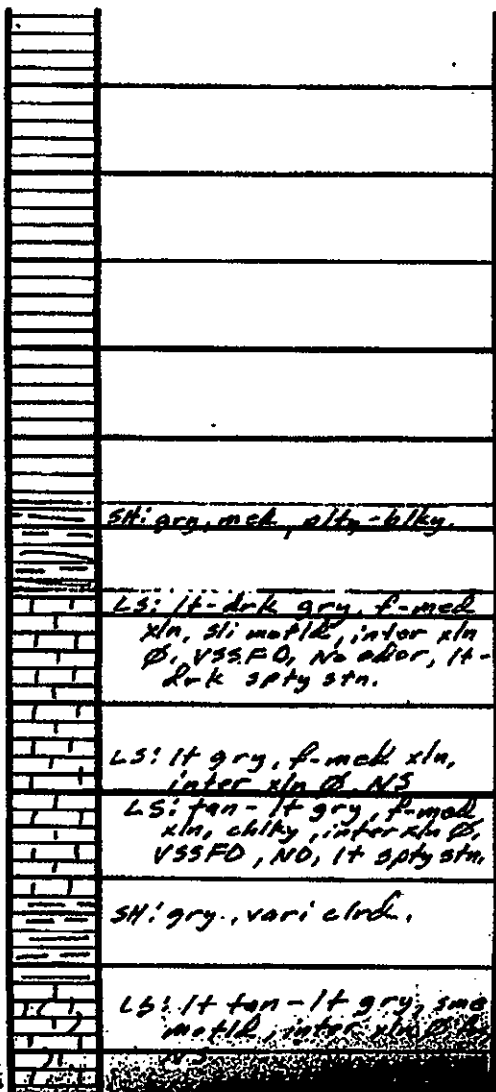 SH: gry, med, plty-blky.
LS: lt-drk gry, f-med
xln, sli motld, inter xln
Ø, VSSFO, No odor, lt-
drk spty stn.
LS: lt gry, f-med xln,
inter xln Ø, NS
LS: tan-lt gry, f-med
xln, chlky, inter xln Ø,
VSSFO, NO, lt spty stn.
SH: gry., vari clrd.
LS: lt tan-lt gry, sme
motld, inter xln Ø
NS